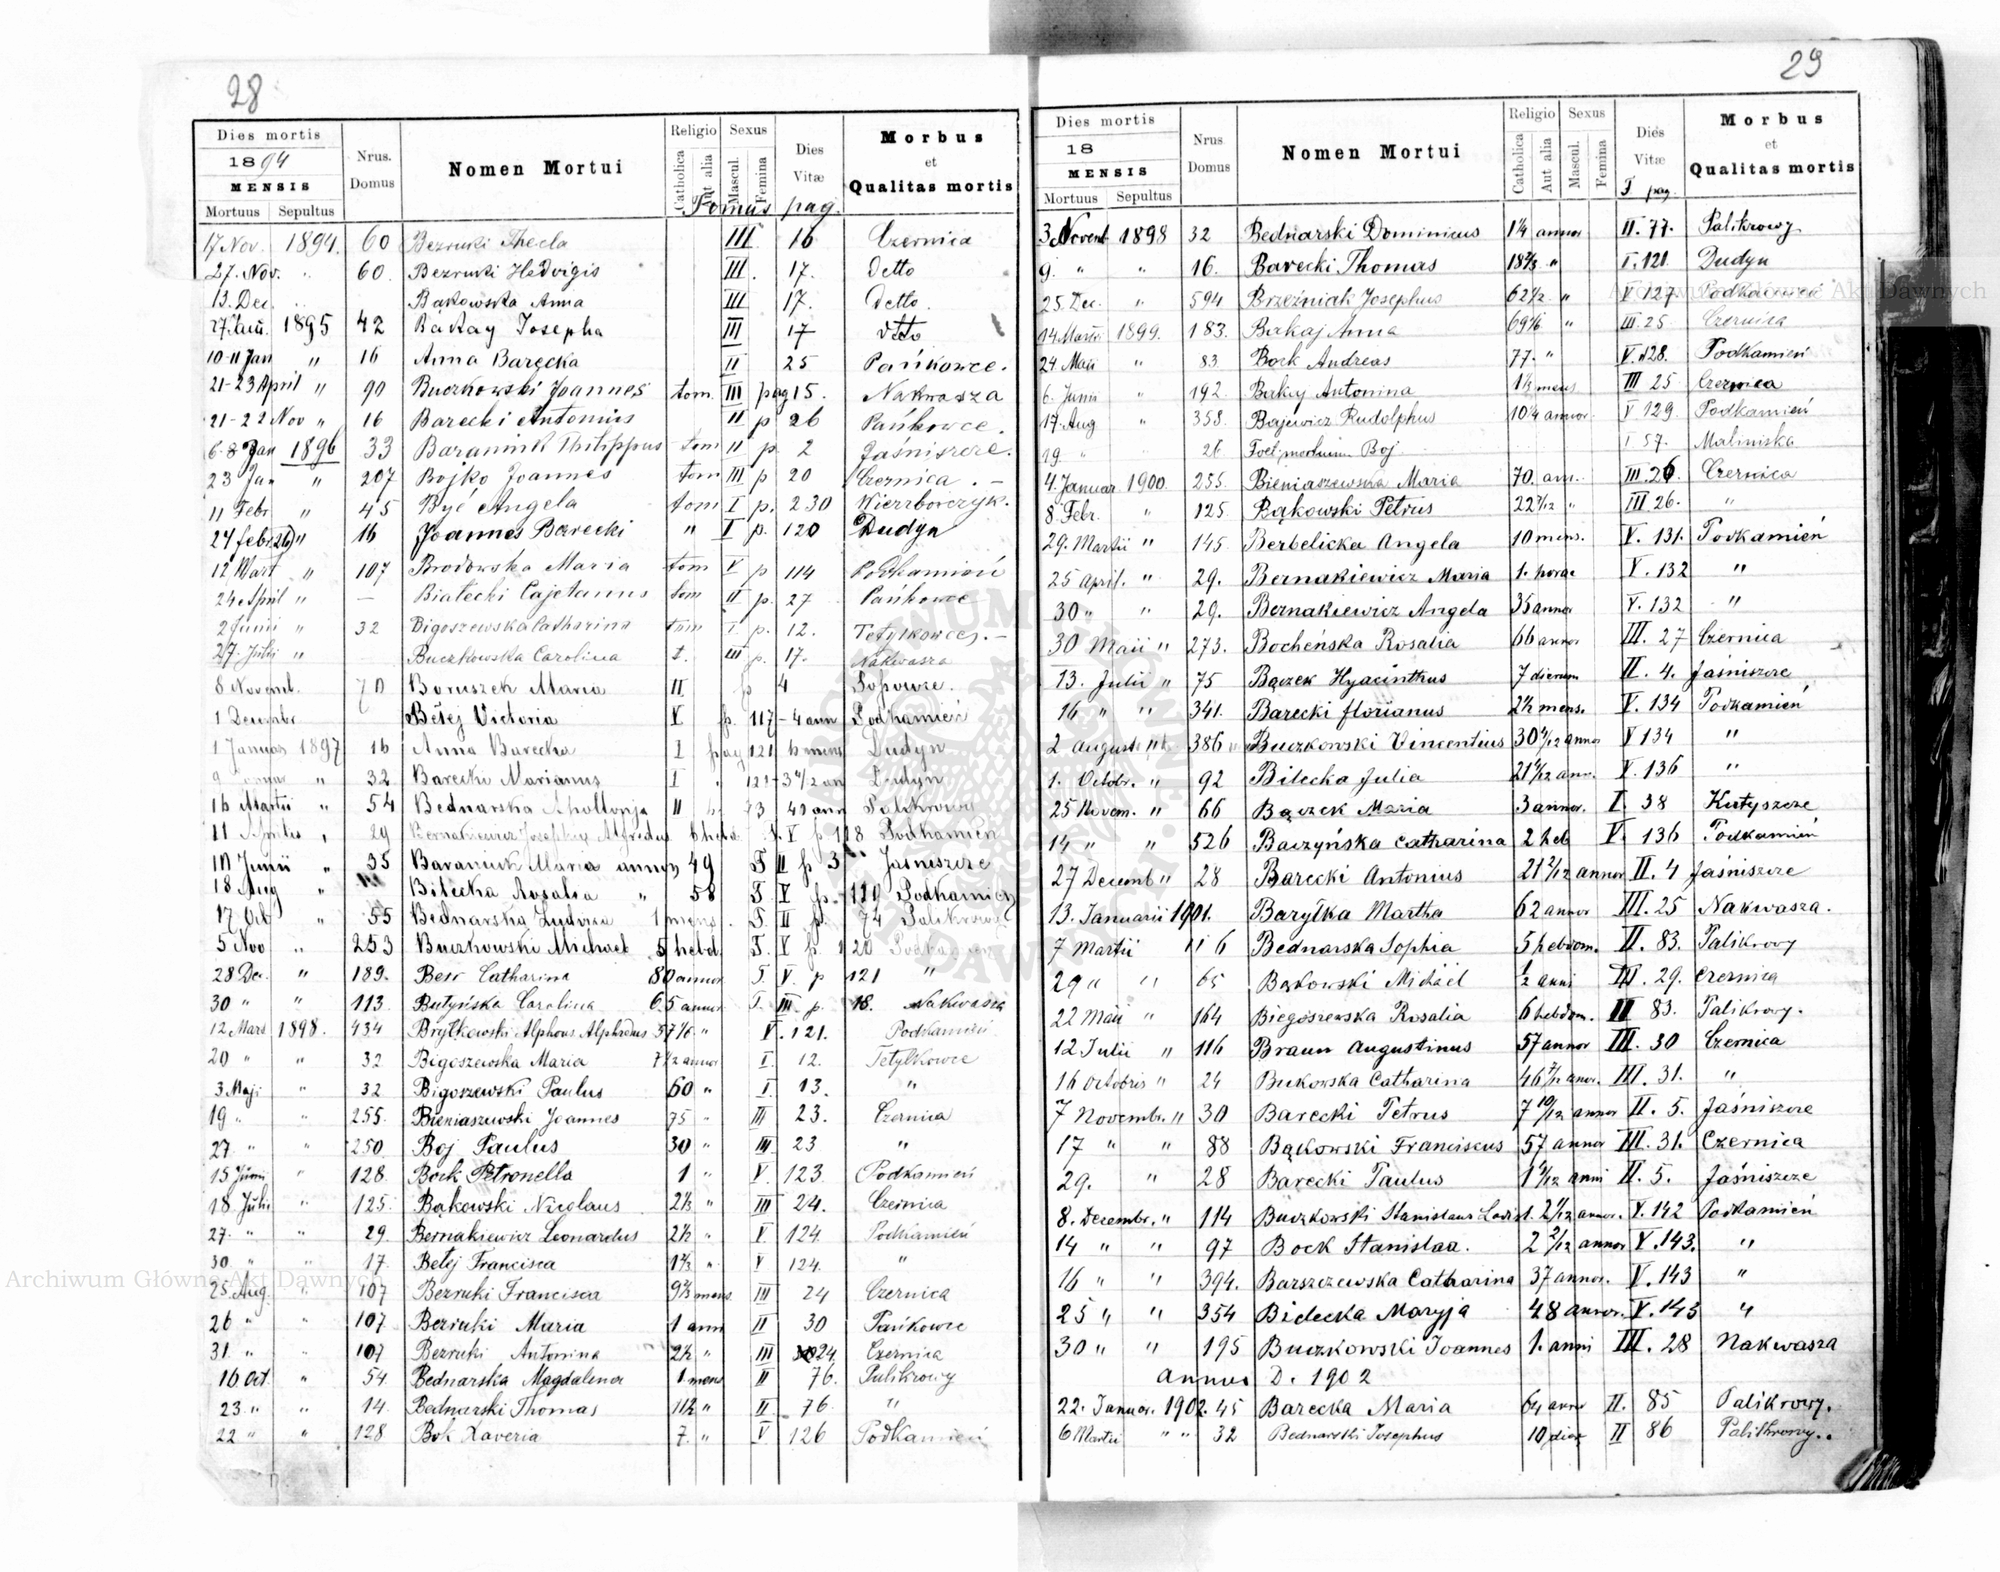 28
Dies mortis
1894
MENSIS
Mortuus Sepultus
Nrus. Domus
Nomen Mortui
Religio
Catholica
Aut alia
Sexus
Mascul.
Femina
Dies Vitæ
Morbus et Qualitas mortis
Tomus pag.
17 Nov. 1894. 60 Bezruki Thecla III 16 Czernica
27. Nov. " 60. Bezruki Hedvigis III. 17. Detto
13. Dec. Bąkowska Anna III 17. Detto.
1895 42 Josepha III 17
10-11 Jan " 16 Anna Barecka II 25 Pańkowce.
21-23 April " 90 Buczkowski Joannes tom. III pag 15. Nakwasza
21-22 Nov " 16 Barecki Antonius II p 26 Pańkowce.
6-8 Jan 1896 33 Baraniuk Philippus tom II p. 2 Jaśniszcze.
23 Jan " 207 Bojko Joannes tom III p 20 Czernica. -
11 Febr " 45 Być Angela tom I p. 230
24 febr. " 16 Joannes Barecki " I p. 120 Dudyn
12 Mart " 107 Brodowska Maria tom V p 114 Podkamień
24 April " — Białecki Cajetanus tom II p. 27 Pańkowce
2 Junii " 32 Bigoszewska Catharina tom I p. 12. Tetylkowce. -
27. Julii " Buczkowska Carolina t. III p. 17. Nakwasza
8 Novemb. 70 Boruszek Maria II p 4
1 Decembr Bełej Victoria V p. 117 - 4 ann Podkamień
1 Januar 1897 16 Anna Barecka I pag 121 Dudyn
9 " 32 Barecki Marianus I " Dudyn
16 Martii " 54 Bednarska Apollonja II Palikrowy
11 Aprilis " 29 Bernakiewicz Josephus Alfredus V p 118 Podkamień
10 Junii " 35 Baraniuk Maria annor 49 T II p 3 Jaśniszcze
18 Aug " Bilecka Rosalia " 58 T. V p. Podkamień
17 Oct " 55 Bednarska Ludovica 1 mens. T. II p. 74 Palikrowy
5 Nov " 253 Buczkowski Michael 5 hebd. T. V p. 120 Podkamień
28 Dec. " 189. Catharina 80 annor T. V. p 121 "
30 " " 113. Butyńska Carolina 65 annor T. III p. 18. Nakwasza
12 Mars 1898. 434 Brylkewski Alphons Alphredus " V. 121. Podkamień
20 " " 32 Bigoszewska Maria 7 1/2 annor I. 12. Tetylkowce
3 Maji " 32 Bigoszewski Paulus 60 " I 13. "
19 " " 255. Bieniaszewski Joannes 75 " III 23. Czernica
27 " " 250 Boj Paulus 30 " III 23 "
15 Junii " 128. Bock Petronella 1 " V. 123 Podkamień
18 Julii " 125. Bąkowski Nicolaus 2 1/2 " III 24. Czernica
27. " " 29 Bernakiewicz Leonardus 2 1/2 " V 124 Podkamień
30 " " 17. Betej Francisca " V 124. "
25 Aug. " 107 Bezruki Francisca mens. III 24 Czernica
26 " " 107 Bezruki Maria 1 ann II 30 Pańkowce
31. " " 107 Bezruki Antonina 2 1/2 " III 24 Czernica
16 Oct. " 54. Bednarska Magdalena 1 mens II 76. Palikrowy
23. " " 14. Bednarski Thomas " II 76. "
22 " " 128 Bok Xaveria 7. " V. 126 Podkamień
29
Dies mortis
18
MENSIS
Mortuus Sepultus
Nrus Domus
Nomen Mortui
Religio
Catholica
Aut alia
Sexus
Mascul.
Femina
Diés Vitæ
T pag.
Morbus et Qualitas mortis
3 Novemb 1898 32 Bednarski Dominicus annor II. 77. Palikrowy
9. " " 16. Barecki Thomas " I. 121 Dudyn
25. Dec. " 594 Brzeźniak Josephus 62 1/2 " V 127 Podkamień
14 Martii 1899. 183. Bakaj Anna " III 25 Czernica
24 Maii " 83 Bock Andreas 77. " V. 128. Podkamień
6. Junii " 192 Bakaj Antonina mens III 25 Czernica
17. Aug " 358. Bajewicz Rudolphus 10 1/4 annor V 129. Podkamień
19. " 26 Foet. mortuum Boj I 57. Maliniska
4. Januar 1900. 255. Bieniaszewska Maria 70. ann. III. 26 Czernica
8 Febr. " 125. Bąkowski Petrus 22 7/12 " III 26. "
29. Martii " 145. Berbelicka Angela 10 mens. V. 131. Podkamień
25 April. " 29. Bernakiewicz Maria 1. horae V. 132 "
30 " " 29. Bernakiewicz Angela 35 annor V. 132 "
30 Maii " 273. Bocheńska Rosalia 66 annor III. 27 Czernica
13. Julii " 75 Bączek Hyacinthus 7 dierum II. 4. Jaśniszcze
16 " " 341. Barecki Florianus 2 1/2 mens. V. 134 Podkamień
2 Augusti " 386 Buczkowski Vincentius 30 annor V 134 "
1. Octobr. " 92 Bilecka Julia ann. V. 136 "
25 Novem. " 66 Bączek Maria 3 annor. I. 38 Kutyszcze
14 " " 526 Baczyńska Catharina 2 heb V. 136 Podkamień
27 Decemb " 28 Barecki Antonius 21 2/12 annor II. 4 Jaśniszcze
13. Januarii 1901. Baryłka Martha 62 annor III. 25 Nakwasza.
7 Martii " 6 Bednarska Sophia 5 hebdom. II. 83. Palikrowy
29 " " 65 Bąkowski Michael 1/2 anni III. 29. Czernica
22 Maii " 164 Biegoszewska Rosalia 6 hebdom. II 83. Palikrowy.
12 Julii " 116 Braun Augustinus 57 annor III. 30 Czernica
16 Octobris " 24 Bukowska Catharina 46 7/12 annor. III. 31. "
7 Novembr. " 30 Barecki Petrus 7 10/12 annor II. 5. Jaśniszcze
17 " " 88 Bąkowski Franciscus 57 annor III. 31. Czernica
29. " 28 Barecki Paulus anni II. 5. Jaśniszcze
8. Decembr. " 114 Buczkowski Stanislaus 2/12 annor. V. 142 Podkamień
14 " " 97 Bock Stanislaa. 2 2/12 annor V. 143. "
16 " " 394. Barszczewska Catharina 37 annor. V. 143 "
25 " " 354 Bidecka Maryja 48 annor. V. 143 "
30 " " 195 Buczkowski Joannes 1. anni III. 28 Nakwasza
Annus D. 1902
22. Januar. 1902. 45 Barecka Maria 64 annor II. 85 Palikrowy.
6 Martii " " 32 Bednarski Josephus 10 dier II 86 Palikrowy..
Archiwum Główne Akt Dawnych
Archiwum Główne Akt Dawnych